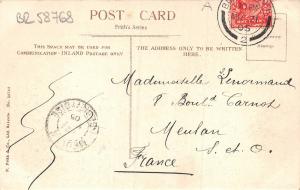 BR58768
POST CARD
Frith's Series
THIS SPACE MAY BE USED FOR
COMMUNICATION - INLAND POSTAGE ONLY
THE ADDRESS ONLY TO BE WRITTEN
HERE.
Mademoiselle Lenormand
Boulᵈ Carnot
Meulan
S. et O.
France